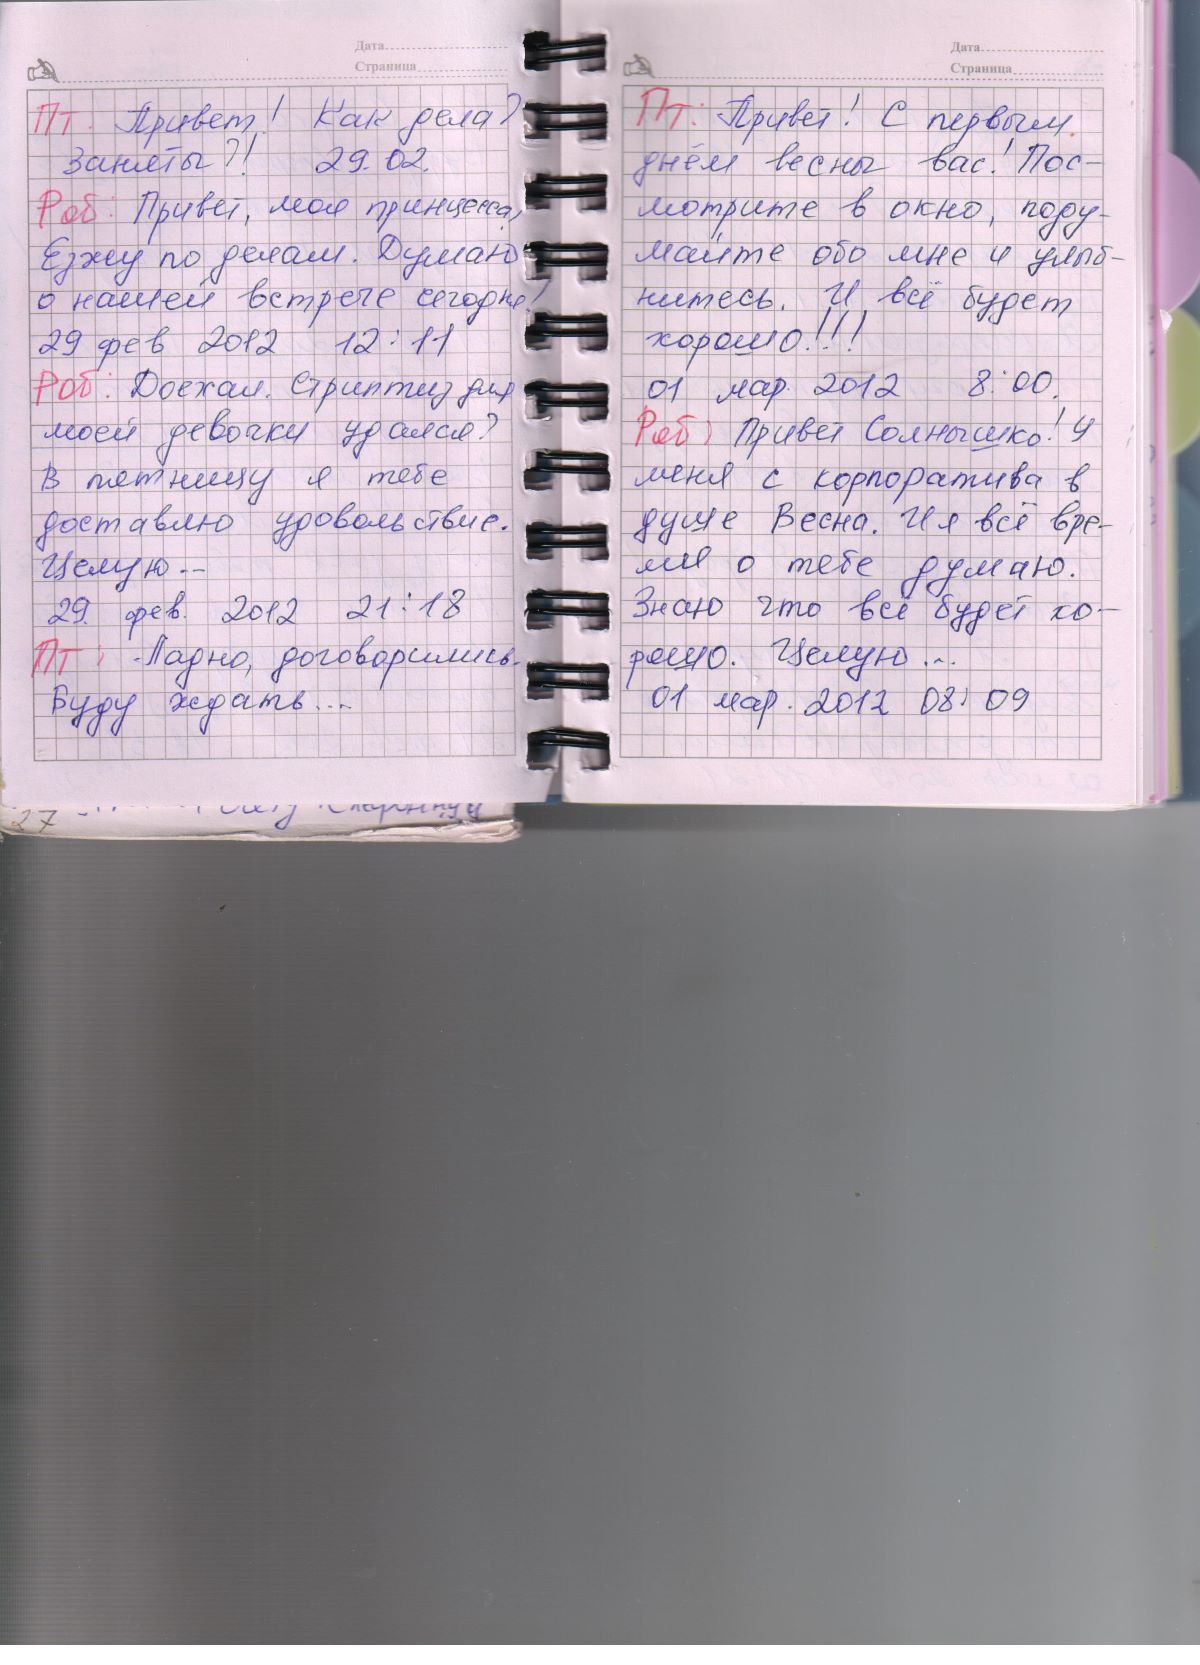 Дата
Страница
Пт: Привет! Как дела?
Заняты?! 29.02.
Роб: Привет, моя принцесса,
Езжу по делам. Думаю
о нашей встрече сегодня!
29 фев 2012 12:11
Роб: Доехал. Стриптиз для
моей девочки удался?
В пятницу я тебе
доставлю удовольствие.
Целую...
29. фев. 2012 21:18
Пт: Ладно, договорились.
Буду ждать...
27
Дата
Страница
Пт: Привет! С первым
днём весны вас! Пос-
мотрите в окно, поду-
майте обо мне и улыб-
нитесь. И всё будет
хорошо!!!
01 мар. 2012 8:00.
Роб: Привет Солнышко! У
меня с корпоратива в
душе Весна. И я всё вре-
мя о тебе думаю.
Знаю что все будет хо-
рошо. Целую...
01 мар. 2012 08:09